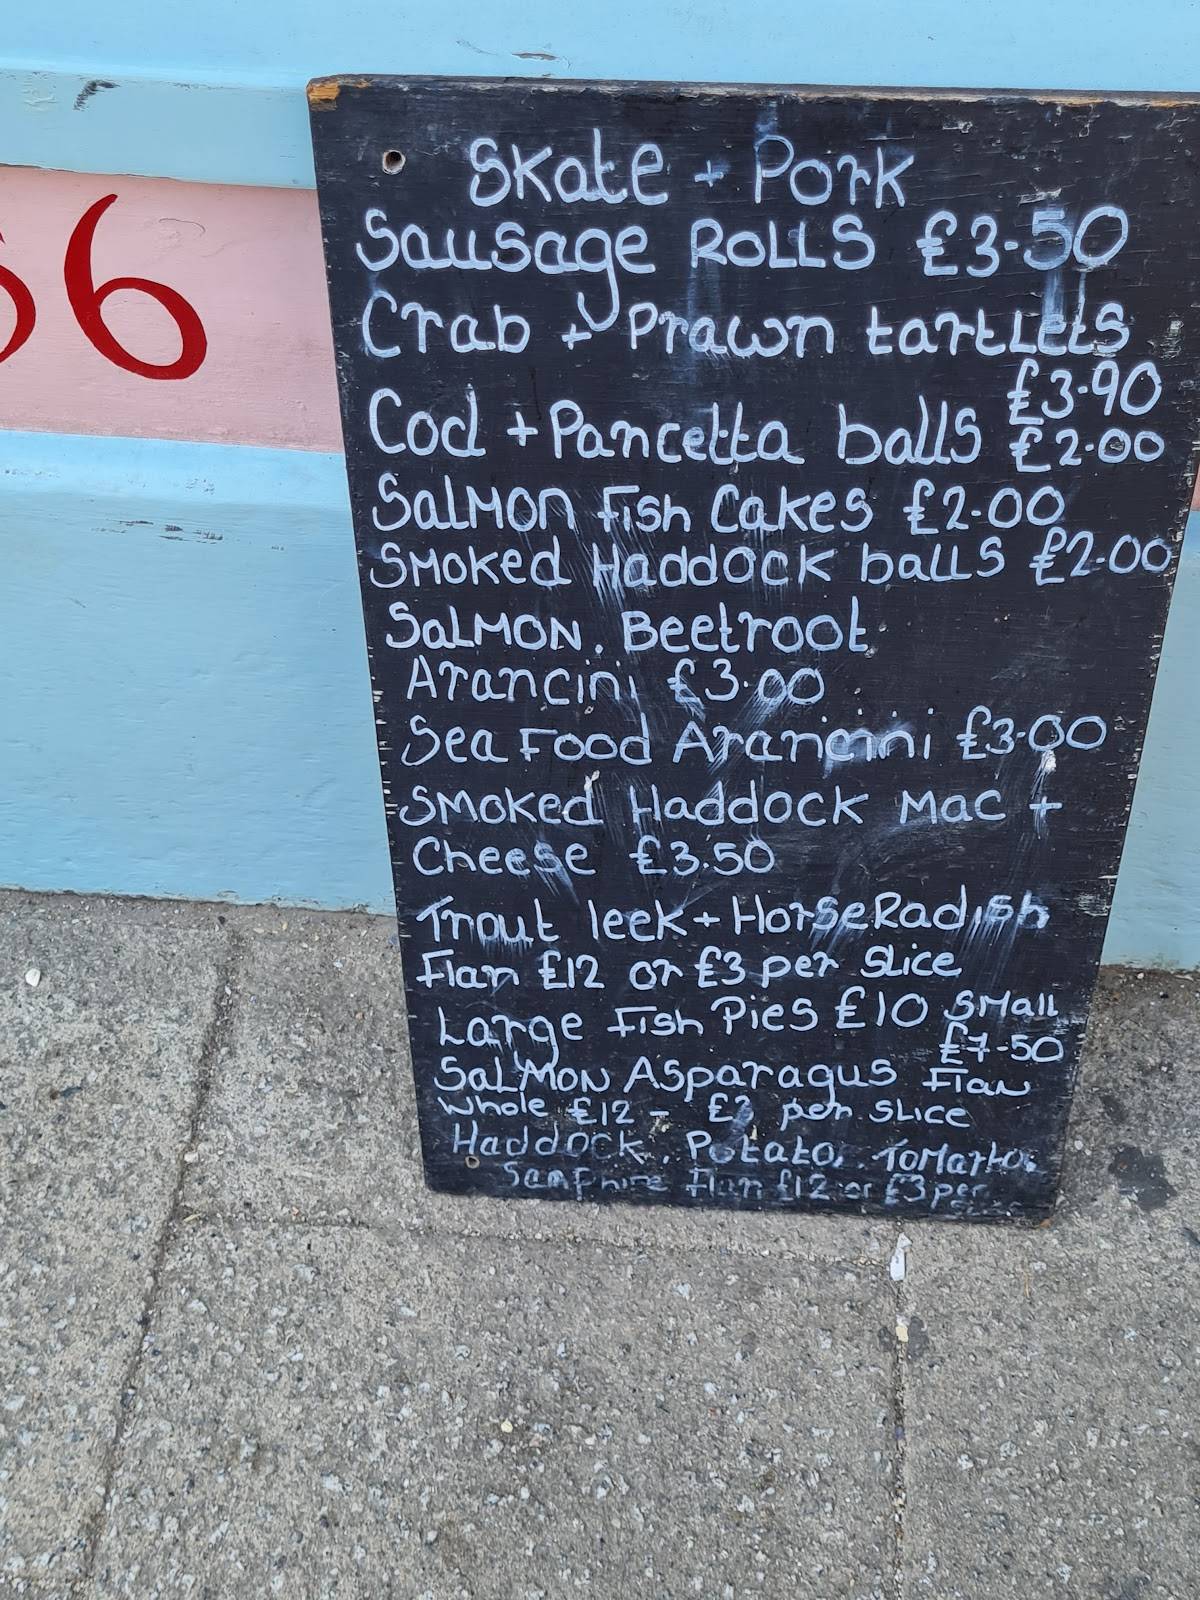 6
Skate + Pork
Sausage ROLLS £3-50
Crab + Prawn tartLets
£3-90
Cod + Pancetta balls £2-00
Salmon Fish Cakes £2-00
Smoked Haddock balls £2-00
SaLMON. Beetroot
Arancini £3-00
Sea Food Arancini £3-00
Smoked Haddock Mac +
Cheese £3.50
Trout leek + HorseRadish
Flan £12 or £3 per Slice
Large Fish Pies £10 Small
£7-50
SaLMON Asparagus Flan
Whole £12 - per SLice
Haddock. Potato.
Samphire Flan £12 or £3 per